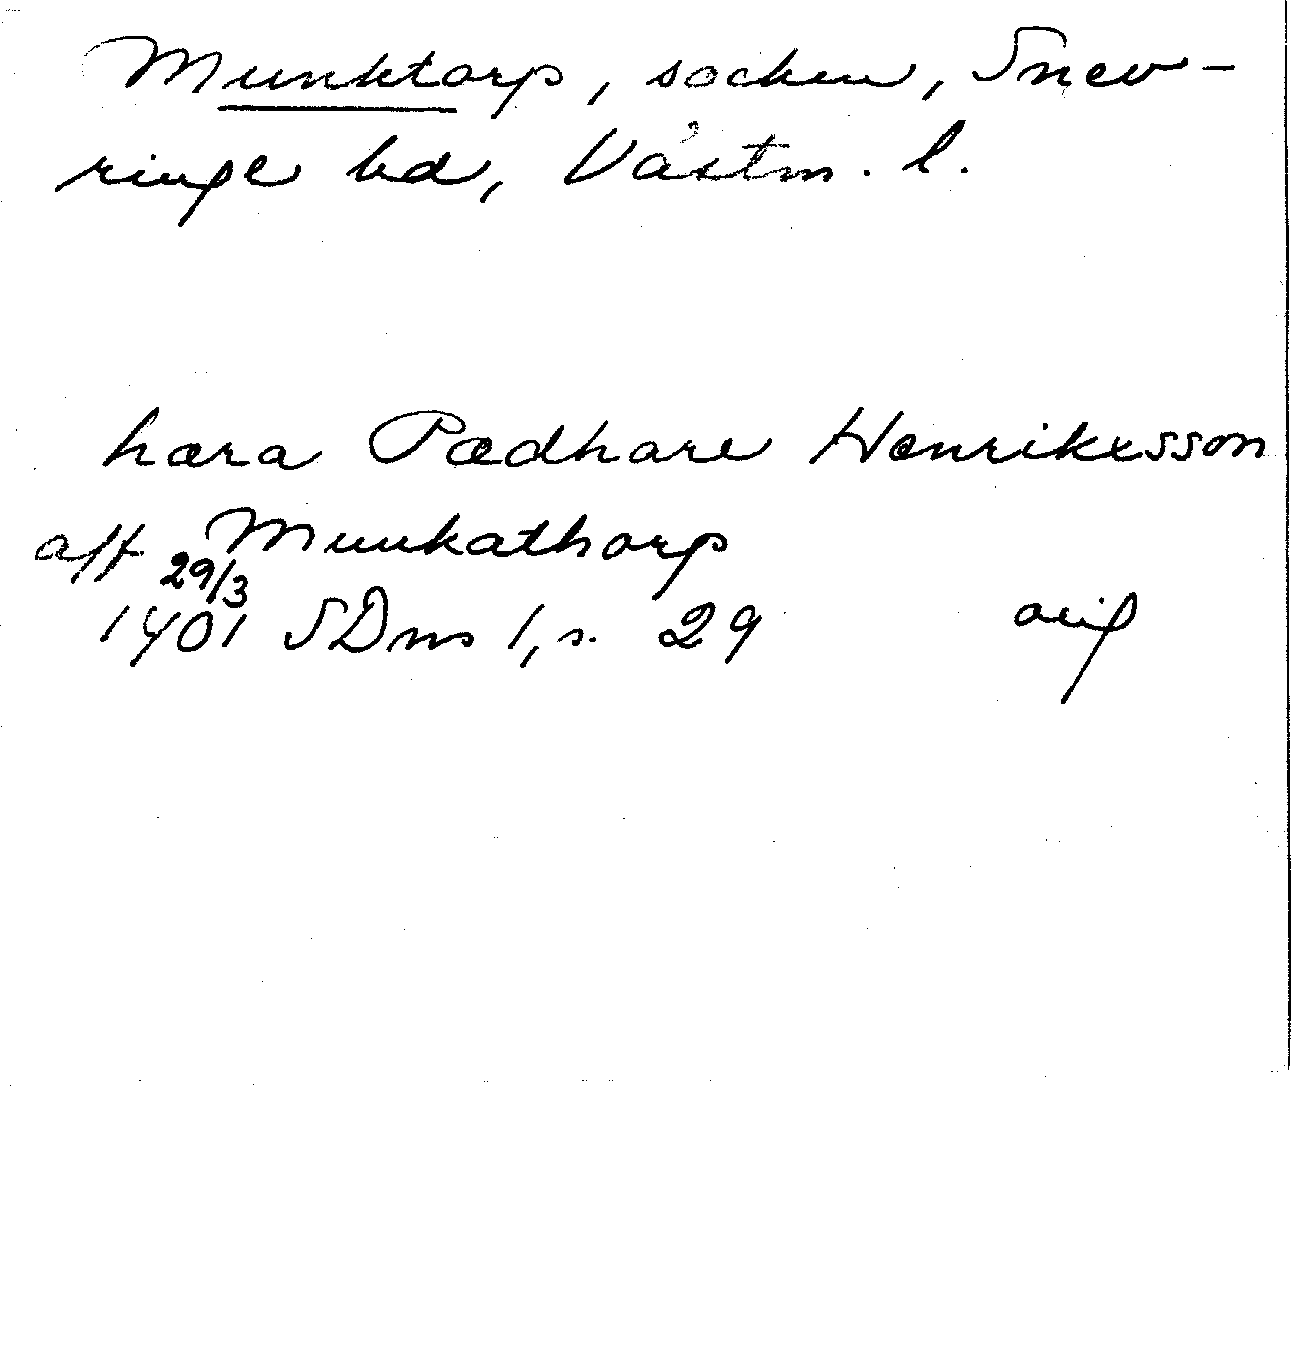 Munktorp, socken, Snev-
ringe hd, Västm. l.
hæra Pædhare Hænrikxsson
aff Munkathorp
29/3
1401 SDns 1, s. 29 orig